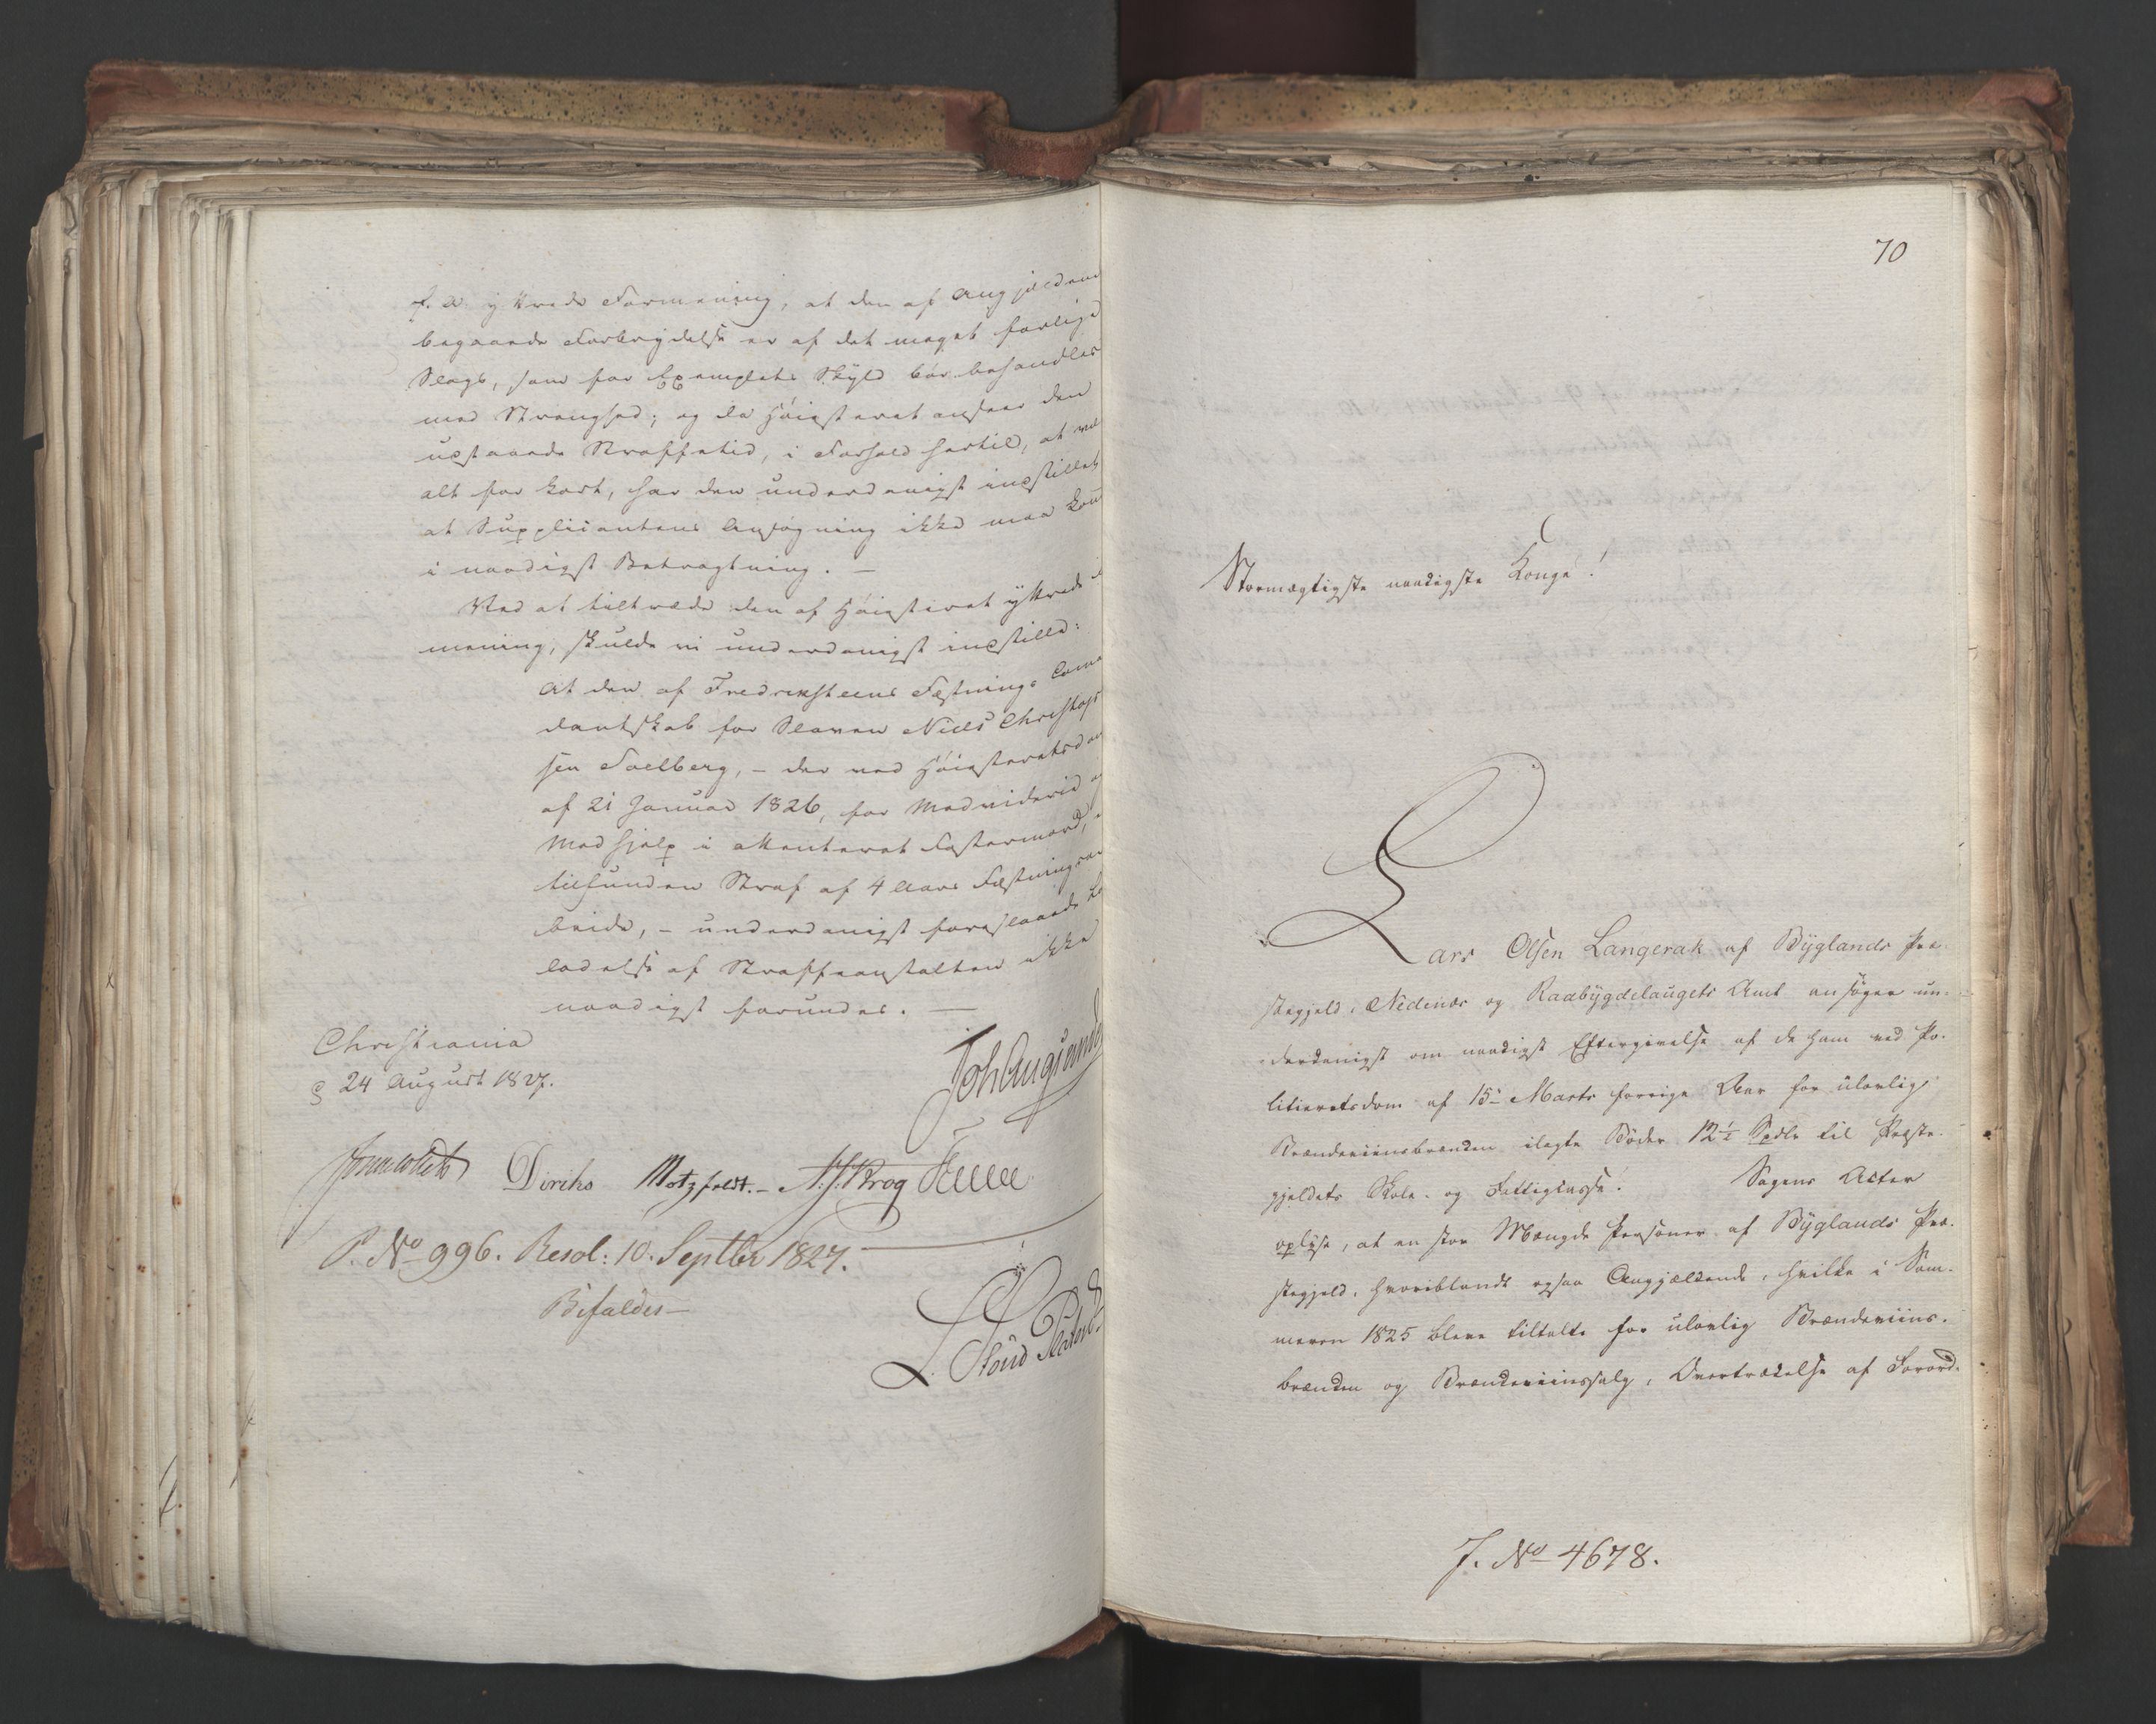 f. A. yttrede Formening, at den af Angjældende
begaaende Forbrydelse er af det meget farlige
Slags, som for Exemplets Skyld bør behandles
med Strenghed; og da Høiesteret ansees den
udstaaede Straffetid, i Forhold hertil, at være
alt for kort, har den underdanigst indstillet
at Supplicantens Ansøgning ikke maa kom
i naadigst Betragtning. —
Ved at tiltræde den af Høiesteret yttrede
mening, skulde vi underdanigst indstille:
At den af Fredriksteens Fæstnings Com
dantskab for Slaven Niels Christophe
sen Foelberg, – der ved Høiesteretsdom
af 21 Januar 1826, for Medvidende
Medhjelp i attenteret Fostermord,
tilfunden Straf af 4 Aars Fæstningsar
beide, – underdanigst foreslaaede Lø
ladelse af Straffeanstalten ikke
naadigst forundes. —
Christiania
d 24 August 1827.
Joh Aug Sande
Diriks Motzfeldt. – A. J. Krog
P. No 996. Resol: 10. Septbr 1827.
Bifaldes –
70
Stormægtigste naadigste Konge!
Lars Olsen Langerak af Byglands Præ-
stegjeld, Nedenæs og Raabygdelaugets Amt ansøger un-
derdanigst om naadigst Eftergivelse af de ham ved Po-
litieretsdom af 15de Marts forrige Aar for ulovlig
Brændeviinsbrænden ilagte Bøder 12½ Spdlr til Præste-
gjeldets Skole- og Fattigkasse. Sagens Acter
oplyse, at en stor Mængde Personer af Byglands Præ-
stegjeld, hvoriblandt ogsaa Angjældende, hvilke i Som-
meren 1825 bleve tiltalte for ulovlig Brændeviins-
brænden og Brændeviinssalg, Overtrædelse af Forord-
J. No 4678.